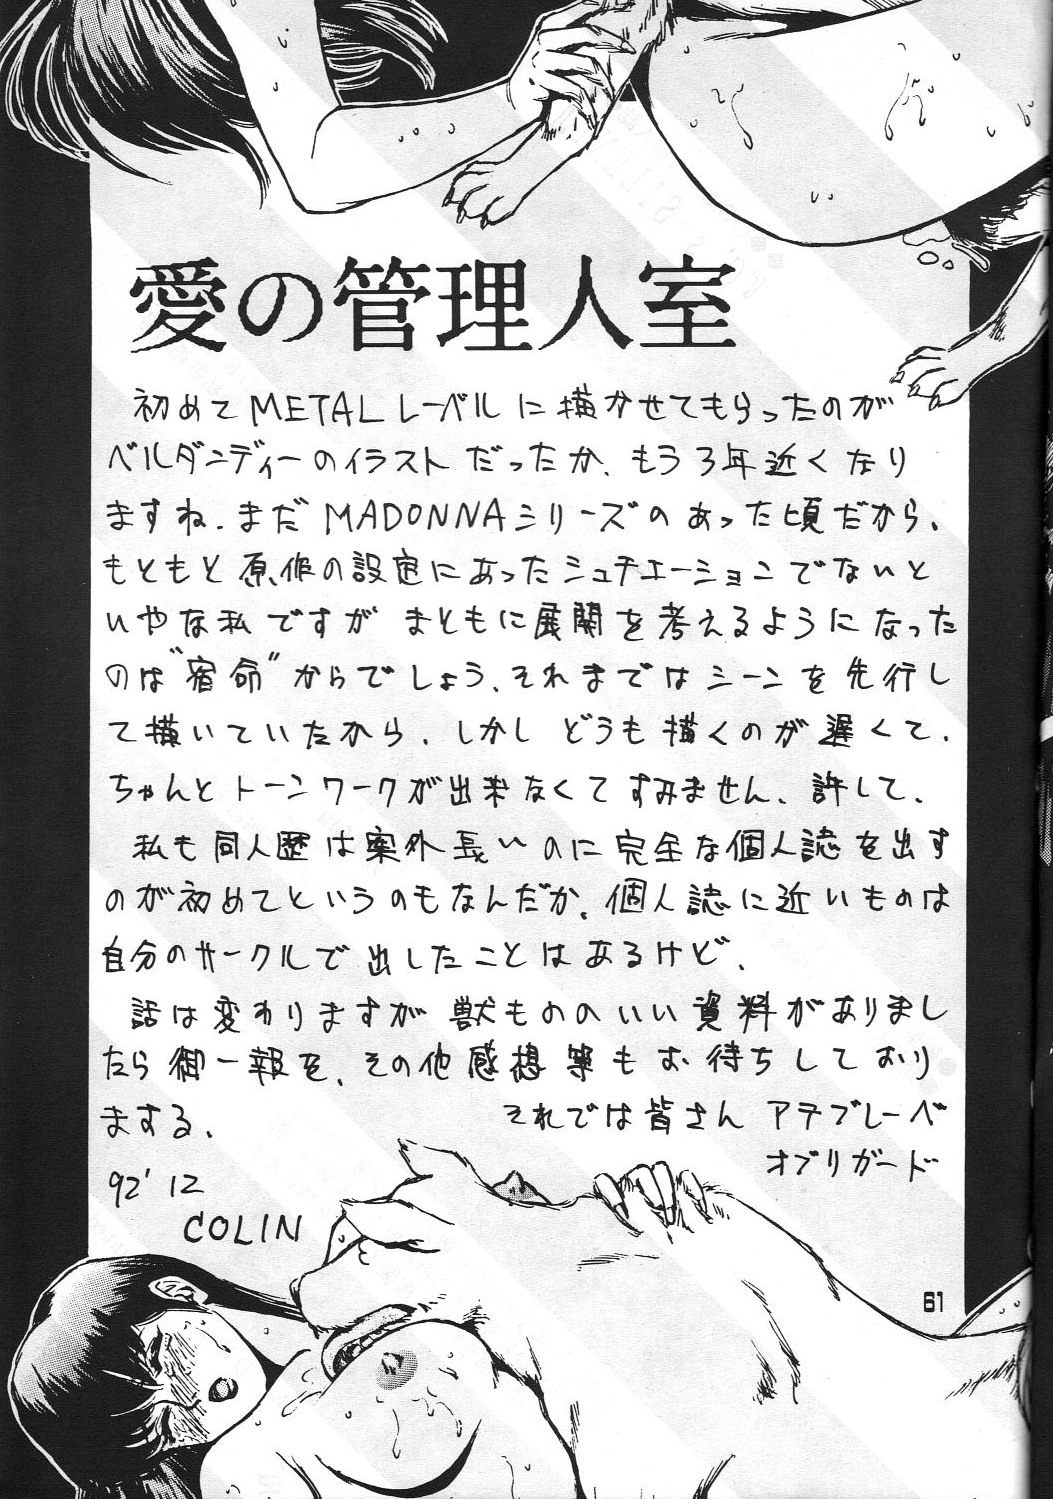 愛の管理人室
初めてMETALレーベルに描かせてもらったのが
ベルダンディーのイラストだったか、もう3年近くなり
ますね.まだMADONNAシリーズのあった頃だから、
もともと原作の設定にあったシュチエーションでないと
いやな私ですが まともに展開を考えるようになった
のは“宿命”からでしょう、それまではシーンを先行し
て描いていたから、しかし どうも描くのが遅くて、
ちゃんとトーンワークが出来なくてすみません、許して、
私も同人歴は案外長いのに完全な個人誌を出す
のが初めてというのもなんだか、個人誌に近いものは
自分のサークルで出したことはあるけど、
話は変わりますが獣もののいい資料がありまし
たら御一報を、その他感想等もお待ちしており
まする、
それでは皆さん アテブレーベ
オブリガード
92' 12
COLIN
61